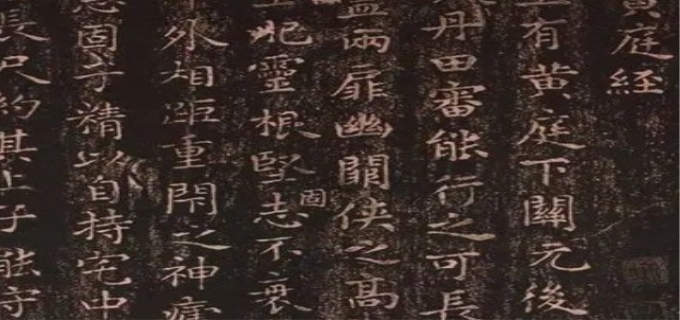 黄庭經
上有黄庭下關元後
丹田審能行之可長
盖兩扉幽關俠之高
生肥靈根堅固志不衰
中外相距重閉之神廬
急固子精以自持宅中
長尺約其上子能守